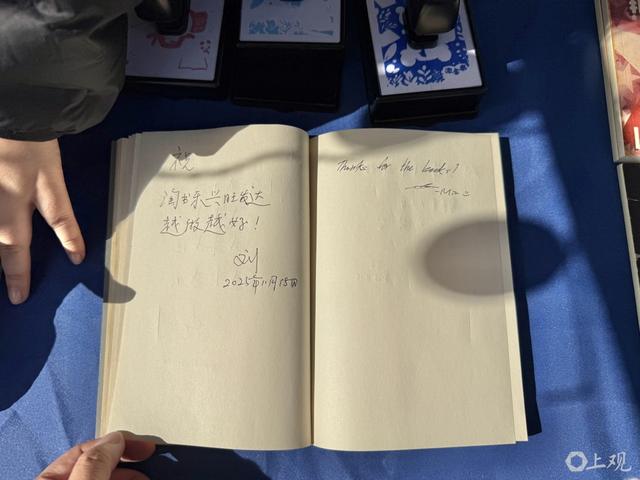 祝
淘书乐兴旺发达
越做越好！
刘
2025年11月15日
Thanks for the books!
上观